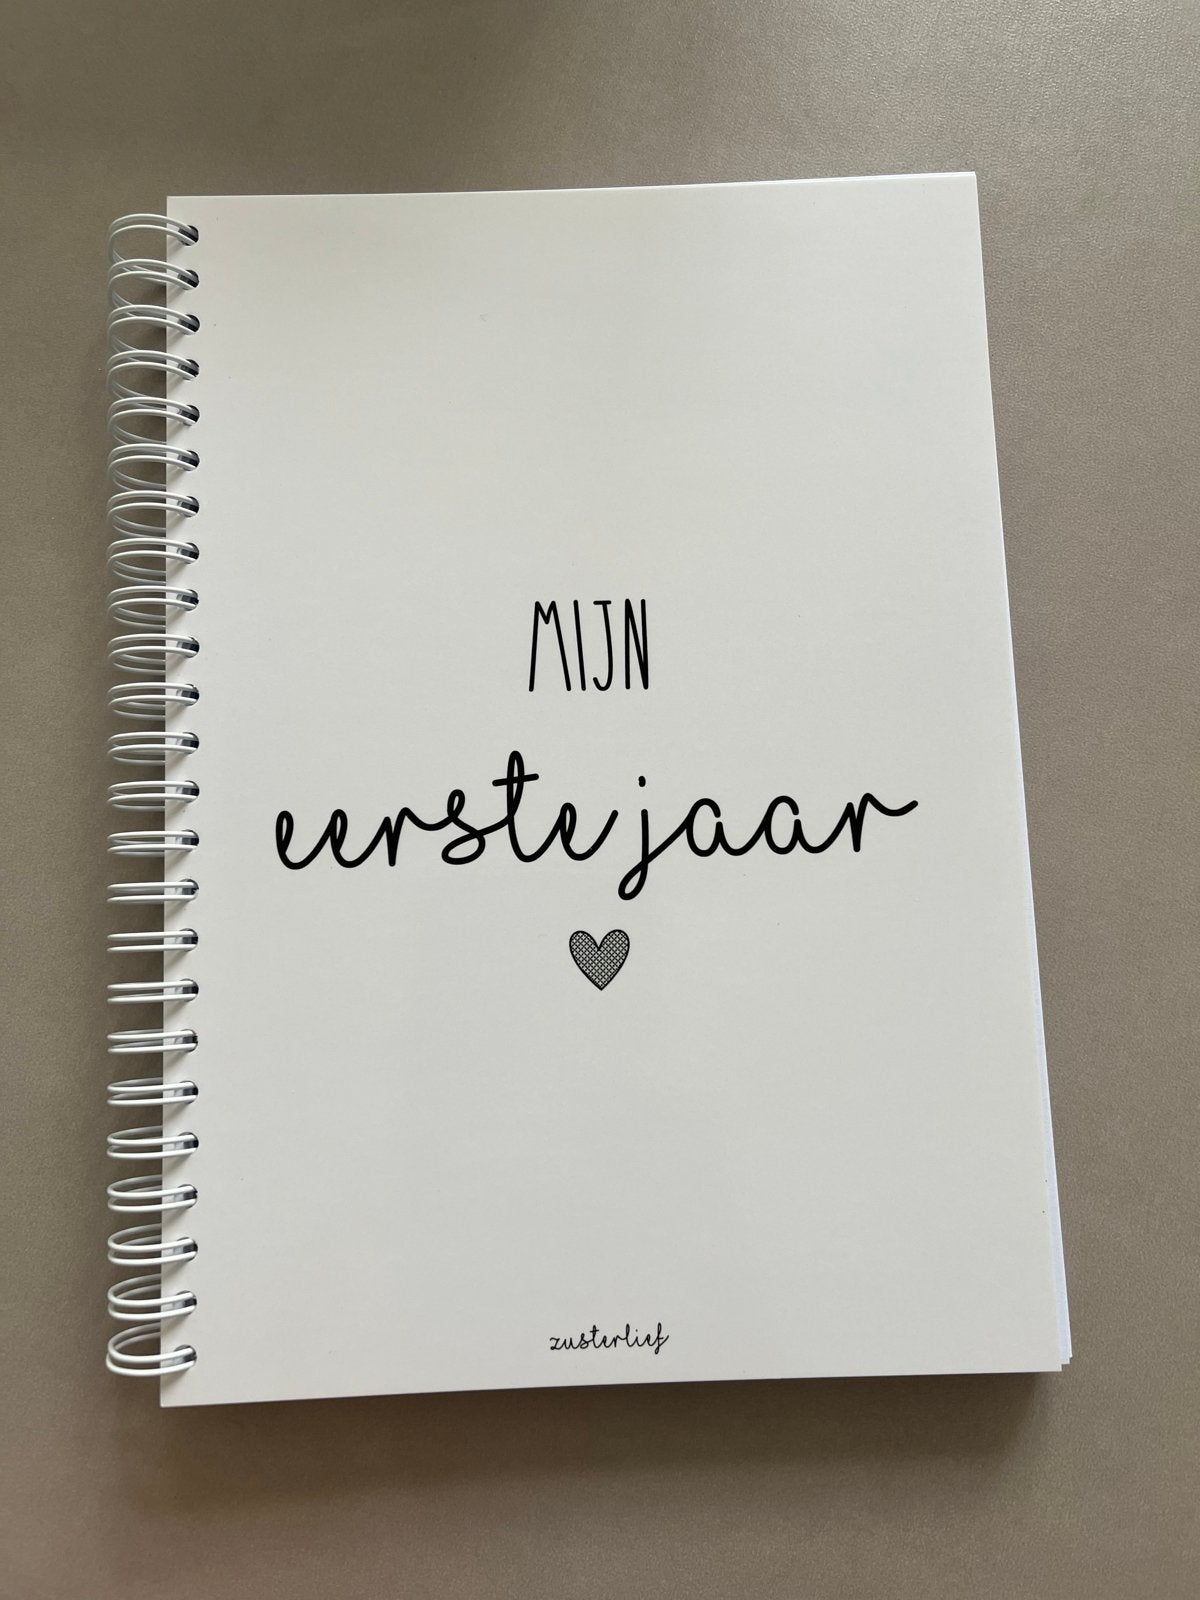 MIJN
eerste jaar
zusterlief